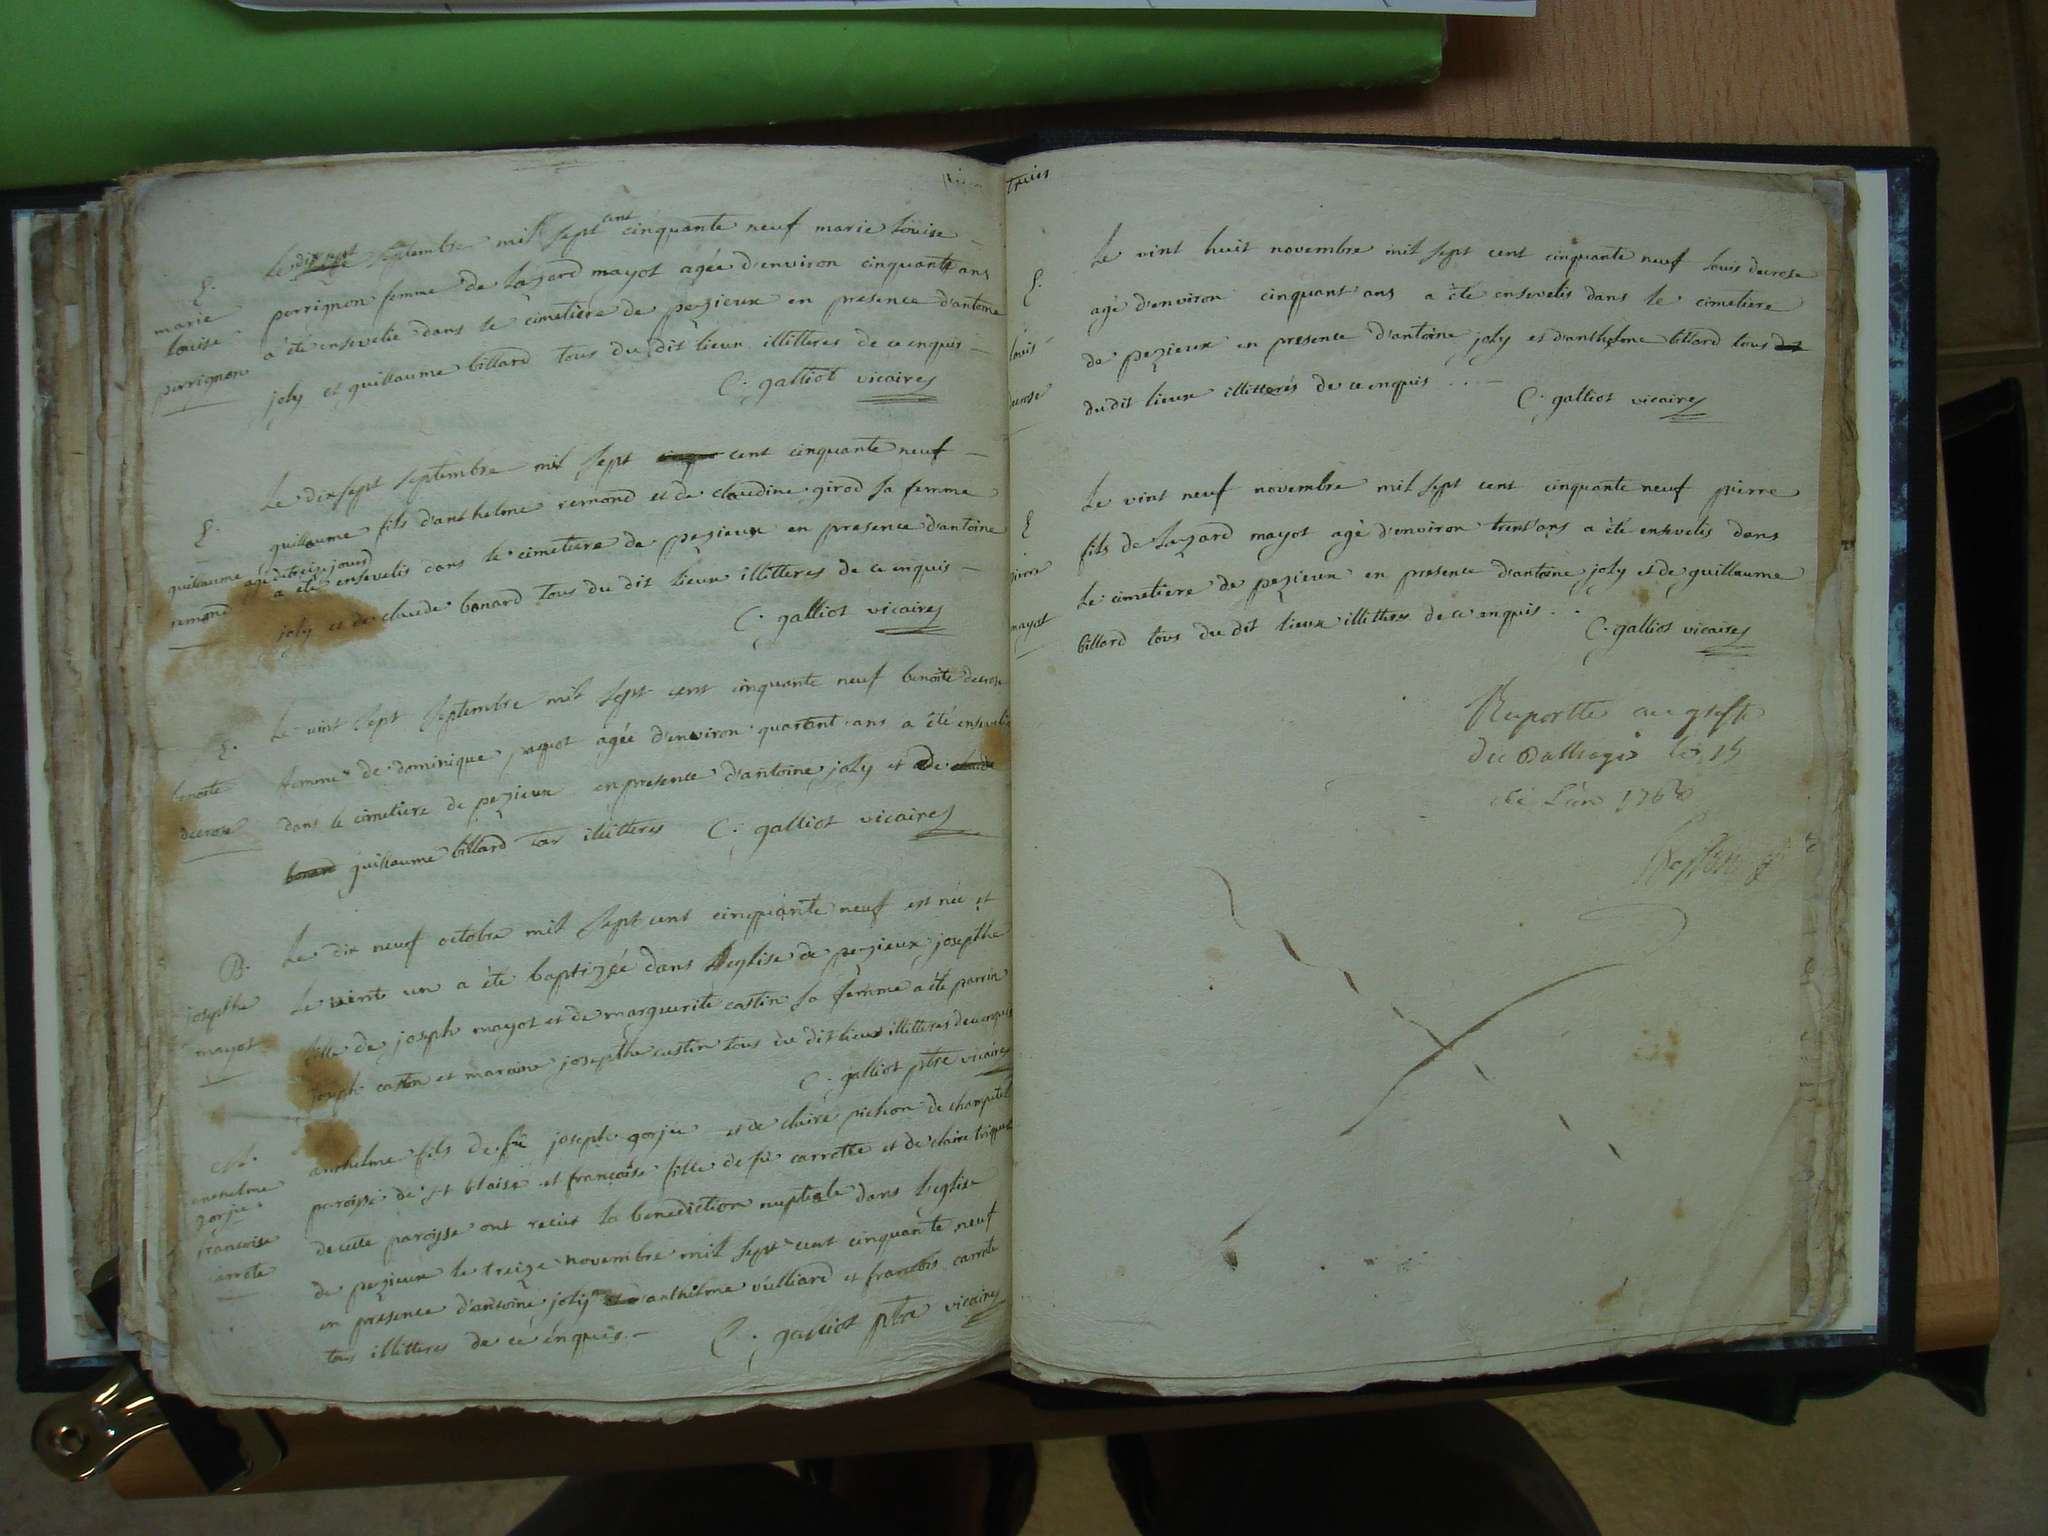 E.
marie
louise
perrignon
Le dix sept septembre mil sept cent cinquante neuf marie Louise
perrignon femme de Lazard mayot agée d'environ cinquante ans
a été ensevelie dans le cimetiere de pezieux en presence d'antoine
joly et guillaume billard tous du dit lieux illitteres de ce enquis
C. galliot vicaire
E.
guillaume
remond
Le dixsept septembre mil sept cent cinquante neuf
guillaume fils d'anthelme remond et de claudine girod sa femme
agé de treize jours
a été ensevelis dans le cimetiere de pezieux en presence d'antoine
joly et de claude bonard tous du dit lieux illitteres de ce enquis
C. galliot vicaire
E.
benoite
decrose
Le vint sept septembre mil sept cent cinquante neuf benoite decrose
femme de dominique paquot agée d'environ quarant ans a été ensevelie
dans le cimetiere de pezieux en presence d'antoine joly et de claude
bonard guillaume billard illitteres C. galliot vicaire
B.
josepthe
mayot
Le dix neuf octobre mil sept cent cinquante neuf est née et
le vint un a été baptizée dans l'eglise de pezieux josepthe
fille de joseph mayot et de marguerite castin sa femme a été parrin
joseph castin et maraine josepthe castin tous du dit lieux illitteres de ce enquis
C. galliot ptre vicaire
M.
anthelme
gorju
francoise
carrote
anthelme fils de fü joseph gorju et de claire pichon de champtel
paroisse de st blaise et françoise fille de fü carrotte et de claire
de cette paroisse ont recus la benediction nuptiale dans l'eglise
de pezieux le treize novembre mil sept cent cinquante neuf
en presence d'antoine joly anthelme vulliard et francois carrote
tous illitteres de ce enquis C. galliot ptre vicaire
trois
E.
louis
decrose
Le vint huit novembre mil sept cent cinquante neuf Louis decrose
agé d'environ cinquant ans a été ensevelis dans le cimetiere
de pezieux en presence d'antoine joly et d'anthelme billard tous
du dit lieux illitterés de ce enquis
C. galliot vicaire
E
pierre
mayot
Le vint neuf novembre mil sept cent cinquante neuf pierre
fils de Lazard mayot agé d'environ trent ans a été ensevelis dans
le cimetiere de pezieux en presence d'antoine joly et de guillaume
billard tous du dit lieux illitteres de ce enquis
C. galliot vicaire
Raportté au greffe
du Balliage le 15